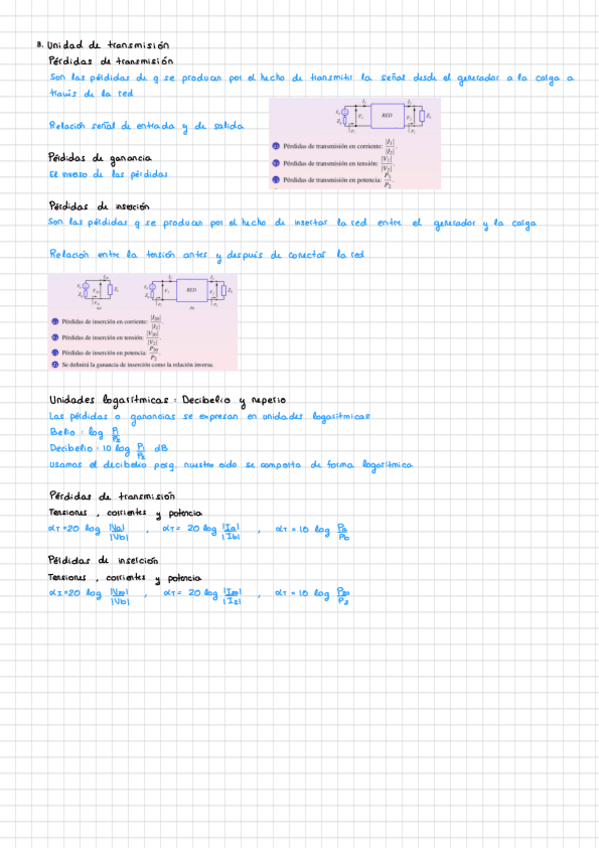 3. Unidad de transmisión
Pérdidas de transmisión
Son las pérdidas de q se producen por el hecho de transmitir la señal desde el generador a la carga a
través de la red
Relación señal de entrada y de salida
RED
Pérdidas de transmisión en corriente: |I₁|/|I₂|.
Pérdidas de transmisión en tensión: |V₁|/|V₂|.
Pérdidas de transmisión en potencia: P₁/P₂.
Pérdidas de ganancia
El inverso de las pérdidas
Pérdidas de inserción
Son las pérdidas q se producen por el hecho de insertar la red entre el generador y la carga
Relación entre la tensión antes y después de conectar la red
RED
Pérdidas de inserción en corriente: |I₂₀|/|I₂|.
Pérdidas de inserción en tensión: |V₂₀|/|V₂|.
Pérdidas de inserción en potencia: P₂₀/P₂.
Se definirá la ganancia de inserción como la relación inversa.
Unidades logarítmicas: Decibelio y neperio
Las pérdidas o ganancias se expresan en unidades logarítmicas
Belio = log P₁/P₂
Decibelio = 10 log P₁/P₂ dB
Usamos el decibelio porq nuestro oido se comporta de forma logarítmica
Pérdidas de transmisión
Tensiones, corrientes y potencia
αT = 20 log |Va|/|Vb| , αT = 20 log |Ia|/|Ib| , αT = 10 log Pa/Pb
Pérdidas de inserción
Tensiones, corrientes y potencia
αI = 20 log |V₂₀|/|Vb| , αT = 20 log |I₂₀|/|I₂| , αT = 10 log P₂₀/P₂